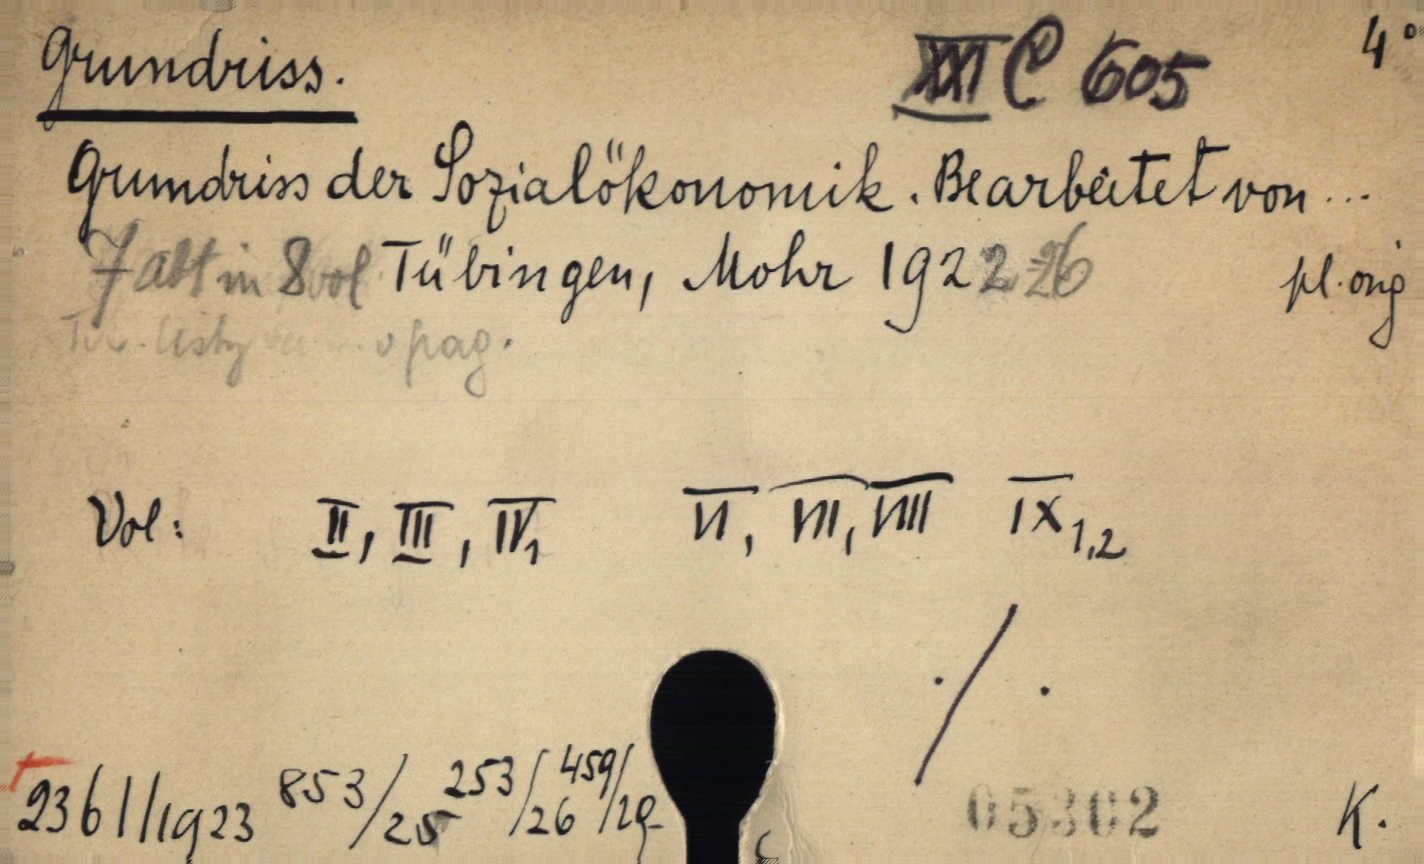 Grundriss. XXI C 605 4°
Grundriss der Sozialökonomik. Bearbeitet von ...
7 abt in 8 vol Tübingen, Mohr 1922-26 pl. orig
v pag.
Vol: II, III, IV1 VI, VII, VIII IX 1,2
./.
2361/1923 853/25 253/26 459/29
05302 K.